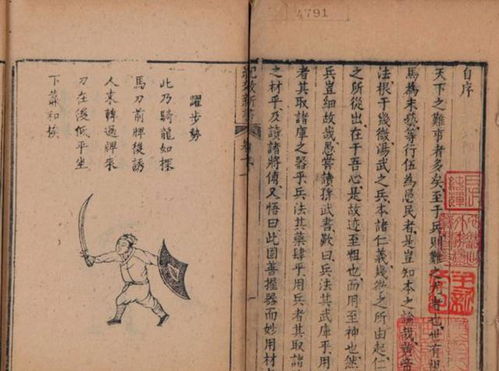 4791
自序
天下之難事者多矣至于兵則難之難者也世有視
馬為末技籌行伍為愚民者是豈知本之論哉黃帝
法根于幾微湯武之兵本諸仁義幾微之所由起仁
之所從出在于吾心是故迹至粗也而用至神也然
兵豈細故哉愚嘗讀孫武書歎曰兵法其武庫乎用
者其取諸庫之器乎兵法其藥肆乎用兵者其取諸
之材乎及讀諸將傳又悟曰此固善握器而妙用材
紀效新書
躍步勢
此乃騎龍如探
馬刀前牌後誘
人來轉過牌來
刀在後低平坐
下蕭和候